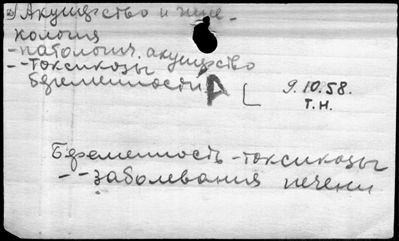 2) Акушерство и гине-
кология
- патология, акушерство
- - токсикозы
беременности
А
9.10.58.
Т.Н.
Беременность - токсикозы
- - заболевания печени